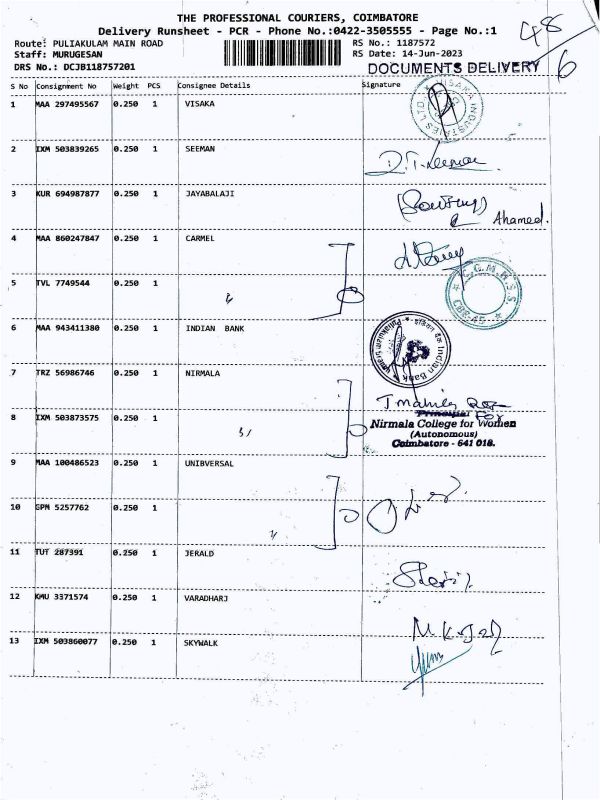 THE PROFESSIONAL COURIERS, COIMBATORE
Delivery Runsheet - PCR - Phone No.:0422-3505555 - Page No.:1
48
Route: PULIAKULAM MAIN ROAD RS No.: 1187572
Staff: MURUGESAN RS Date: 14-Jun-2023
DRS No.: DCJB1187757201 DOCUMENTS DELIVERY 6
S No Consignment No Weight PCS Consignee Details Signature
1 MAA 297495567 0.250 1 VISAKA
2 IXM 503839265 0.250 1 SEEMAN
3 KUR 694987877 0.250 1 JAYABALAJI
Ahamed.
4 MAA 860247847 0.250 1 CARMEL
5 TVL 7749544 0.250 1
C.C.M.H.S.S.
CBE-45
6 MAA 943411380 0.250 1 INDIAN BANK
Indian Bank
7 TRZ 56986746 0.250 1 NIRMALA
For
Principal
8 IXM 503873575 0.250 1
Nirmala College for Women
(Autonomous)
Coimbatore - 641 018.
9 MAA 100486523 0.250 1 UNIBVERSAL
10 GPM 5257762 0.250 1
11 TUT 287391 0.250 1 JERALD
12 KMU 3371574 0.250 1 VARADHARJ
13 IXM 503860077 0.250 1 SKYWALK